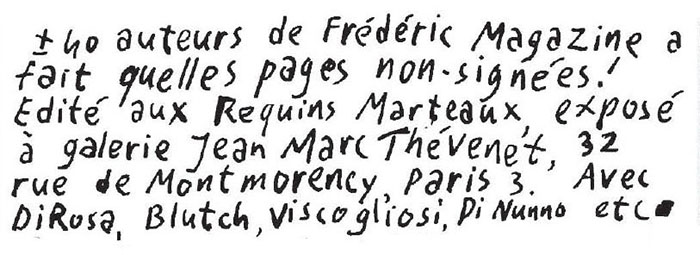 ± 40 auteurs de Frédéric Magazine a
fait quelles pages non-signées!
Edité aux Requins Marteaux, exposé
à galerie Jean Marc Thévenet, 32
rue de Montmorency, Paris 3. Avec
DiRosa, Blutch, Viscogliosi, Di Nunno etc.